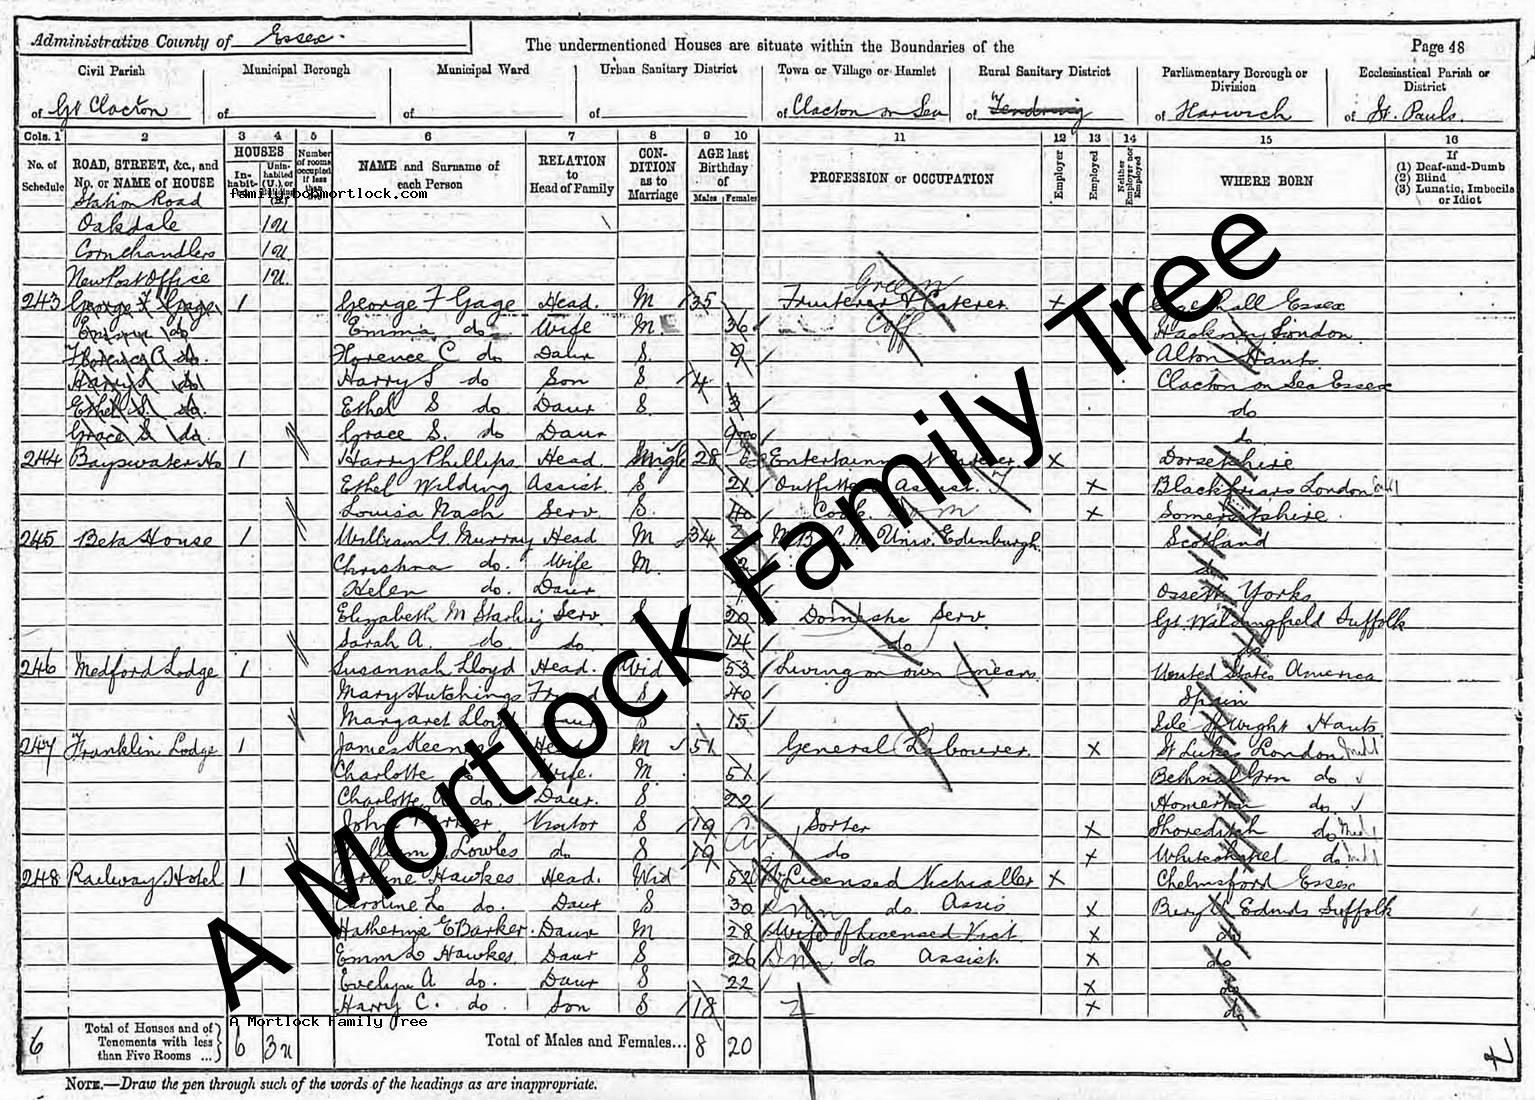 Administrative County of Essex.
The undermentioned Houses are situate within the Boundaries of the
Page 48
Civil Parish
Municipal Borough
Municipal Ward
Urban Sanitary District
Town or Village or Hamlet
Rural Sanitary District
Parliamentary Borough or Division
Ecclesiastical Parish or District
of Gt Clacton
of
of
of
of Clacton on Sea
of Tendring
of Harwich
of St. Pauls.
Cols. 1 2 3 4 5 6 7 8 9 10 11 12 13 14 15 16
No. of Schedule
ROAD, STREET, &c., and No. or NAME of HOUSE
HOUSES
In-habit-
Unin-habited (U.), or
Number of rooms occupied if less than
NAME and Surname of each Person
RELATION to Head of Family
CON-DITION as to Marriage
AGE last Birthday of
Males Females
PROFESSION or OCCUPATION
Employer
Employed
Neither Employer nor Employed
WHERE BORN
If
(1) Deaf-and-Dumb
(2) Blind
(3) Lunatic, Imbecile or Idiot
family.bob@mortlock.com
Station Road
Oakdale 1 u
Cornchandlers 1 u
New Post Office 1 u
243 George F Gage 1 George F Gage Head. M 35 Fruiterer & Caterer x Essex
Emma do Emma do Wife M 36 Hackney London
Florence C do. Florence C do Daur S. 9 Alton Hants
Harry S do Harry S do Son S 4 Clacton on Sea Essex
Ethel S. do. Ethel S do. Daur S. 3 do
Grace S do. Grace S. do Daur do
244 Bayswater Ho 1 Harry Phillips Head. Single 28 Entertainment x Dorsetshire
Ethel Wilding Assist. S 21 Outfitters Assist. x Blackfriars London
Louisa Nash Serv. S. 40 Cook x Somersetshire
245 Beta House 1 William G. Murray Head M 34 M.B. C.M. Univ. Edinburgh Scotland
Christina do. Wife M. do
Helen do. Daur Ossett Yorks
Elizabeth M Starling Serv. S 20 Domestic Serv. Suffolk
Sarah A. do. do. 14 do
246 Medford Lodge 1 Susannah Lloyd Head. Wid 53 Living on own means United States America
Mary Hutchings Friend S 40 Spain
Margaret Lloyd Daur S 15 Isle of Wight Hants
247 Franklin Lodge 1 James Head M 51 General Labourer. x St Lukes London
Charlotte do Wife. M. 51 Bethnal Grn do
Charlotte A do. Daur. S 22 Homerton do.
John Visitor S 19 Sorter x Shoreditch do
William Lowles do S 19 do x Whitechapel do
248 Railway Hotel 1 Caroline Hawkes Head. Wid 52 Licensed Victualler x Chelmsford Essex
Caroline L. do. Daur S 30 do Assis x Bury St Edmds Suffolk
Katherine E Barker. Daur M 28 Wife of Licensed Vict. x do
Emma L Hawkes Daur S 26 do Assist. x do
Evelyn A do. Daur S 22 x do
Harry C. do. Son S 18 x do
A Mortlock Family Tree
A Mortlock Family Tree
6 Total of Houses and of Tenements with less than Five Rooms ... 6 3u Total of Males and Females... 8 20
NOTE.—Draw the pen through such of the words of the headings as are inappropriate.